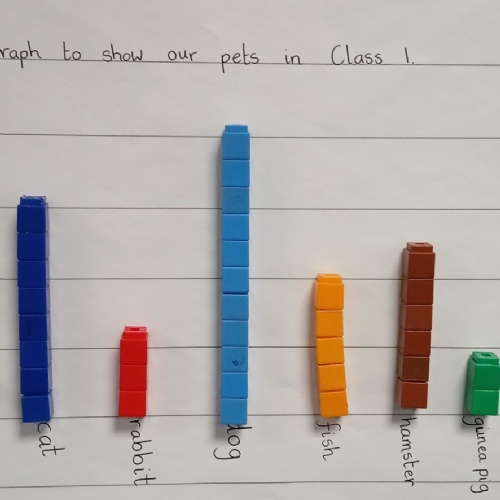 raph to show our pets in Class 1.
cat
rabbit
dog
fish
hamster
gunea pig